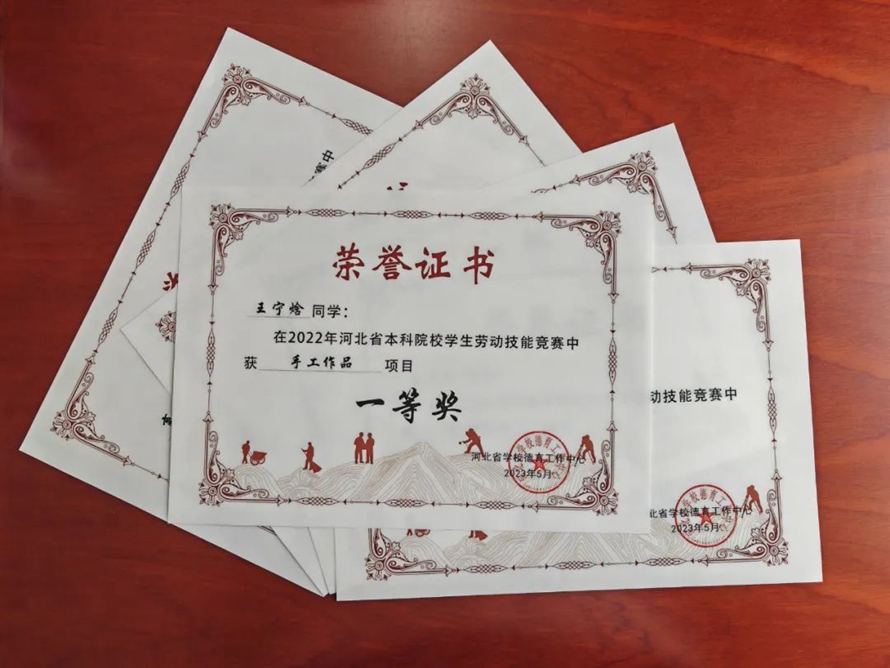 荣誉证书
王宁焓 同学：
在2022年河北省本科院校学生劳动技能竞赛中
获 手工作品 项目
一等奖
河北省学校德育工作中心
2023年5月
动技能竞赛中
北省学校德育工作中心
2023年5月
赛中